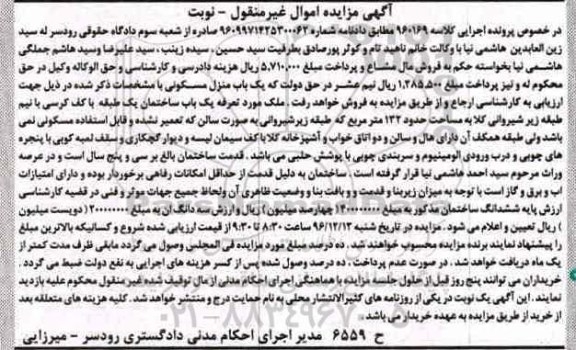 آگهی مزایده اموال غیرمنقول - نوبت
در خصوص پرونده اجرایی کلاسه ۹۶۰۱۶۹ مطابق دادنامه شماره ۹۶۰۹۹۷۱۴۲۵۳۰۰۰۶۲ صادره از شعبه سوم دادگاه حقوقی رودسر له سید
زین العابدین هاشمی نیا با وکالت خانم ناهید تام و کوثر پورصادق بطرفیت سید حسین ، سیده زینب ، سید علیرضا وسید هاشم جملگی
هاشمی نیا بخواسته حکم به فروش مال مشاع و پرداخت مبلغ ۵,۷۱۰,۰۰۰ ریال هزینه دادرسی و کارشناسی و حق الوکاله وکیل در حق
محکوم له و نیز پرداخت مبلغ ۱,۲۸۵,۵۰۰ ریال نیم عشر در حق دولت که یک باب منزل مسکونی با مشخصات ذکر شده در ذیل جهت
ارزیابی به کارشناسی ارجاع و از طریق مزایده به فروش خواهد رفت . ملک مورد تعرفه یک باب ساختمان یک طبقه با کف کرسی با نیم
طبقه زیر شیروانی کلا به مساحت حدود ۱۳۲ متر مربع که طبقه زیرشیروانی به صورت سالن که تعمیر نشده و قابل استفاده مسکونی نمی
باشد ولی طبقه همکف آن دارای هال و سالن و دو اتاق خواب و آشپزخانه کلا با کف سیمان لیسه و دیوار گچکاری و سقف لمبه کوبی با پنجره
های چوبی و درب ورودی آلومینیوم و سربندی چوبی با پوشش حلبی می باشد . قدمت ساختمان بالغ بر سی و پنج سال است و در عرصه
وراث مرحوم سید احمد هاشمی نیا قرار گرفته است . ساختمان به دلیل قدمت از حداقل امکانات رفاهی برخوردار بوده و دارای امتیازات
آب و برق و گاز است با توجه به میزان زیربنا و قدمت و و بافت بنا و وضعیت ظاهری آن ولحاظ جمیع جهات موثر و فنی در قضیه کارشناسی
ارزش پایه ششدانگ ساختمان مذکور به مبلغ ۴۰۰۰۰۰۰۰۰ (چهارصد میلیون) ریال و ارزش سه دانگ آن به مبلغ ۲۰۰۰۰۰۰۰۰ (دویست میلیون
) ریال تعیین و اعلام می شود . مزایده در تاریخ شنبه ۹۶/۱۲/۱۲ ساعت ۸:۳۰ تا ۹:۳۰ از قیمت ارزیابی شده شروع و کسانیکه بالاترین مبلغ
را پیشنهاد نمایند برنده مزایده محسوب خواهند شد . ده درصد مبلغ مورد مزایده فی المجلس وصول می گردد مابقی ظرف مدت کمتر از
یک ماه دریافت خواهد شد . در صورت عدم پرداخت ، ده درصد وصول شده پس از کسر هزینه های اجرایی به نفع دولت ضبط می گردد .
خریداران می توانند پنج روز قبل از حلول جلسه مزایده با هماهنگی اجرای احکام مدنی از مال توقیف شده غیر منقول محکوم علیه بازدید
نمایند . این آگهی یک نوبت در یکی از روزنامه های کثیرالانتشار محلی به نام حمایت درج و منتشر خواهد شد . کلیه هزینه های متعلقه بعد
از خرید از طریق مزایده به عهده خریدار می باشد .
ح ۶۵۵۹ مدیر اجرای احکام مدنی دادگستری رودسر - میرزایی
۰۲۱-۸۸۳۴۹۶۷۰